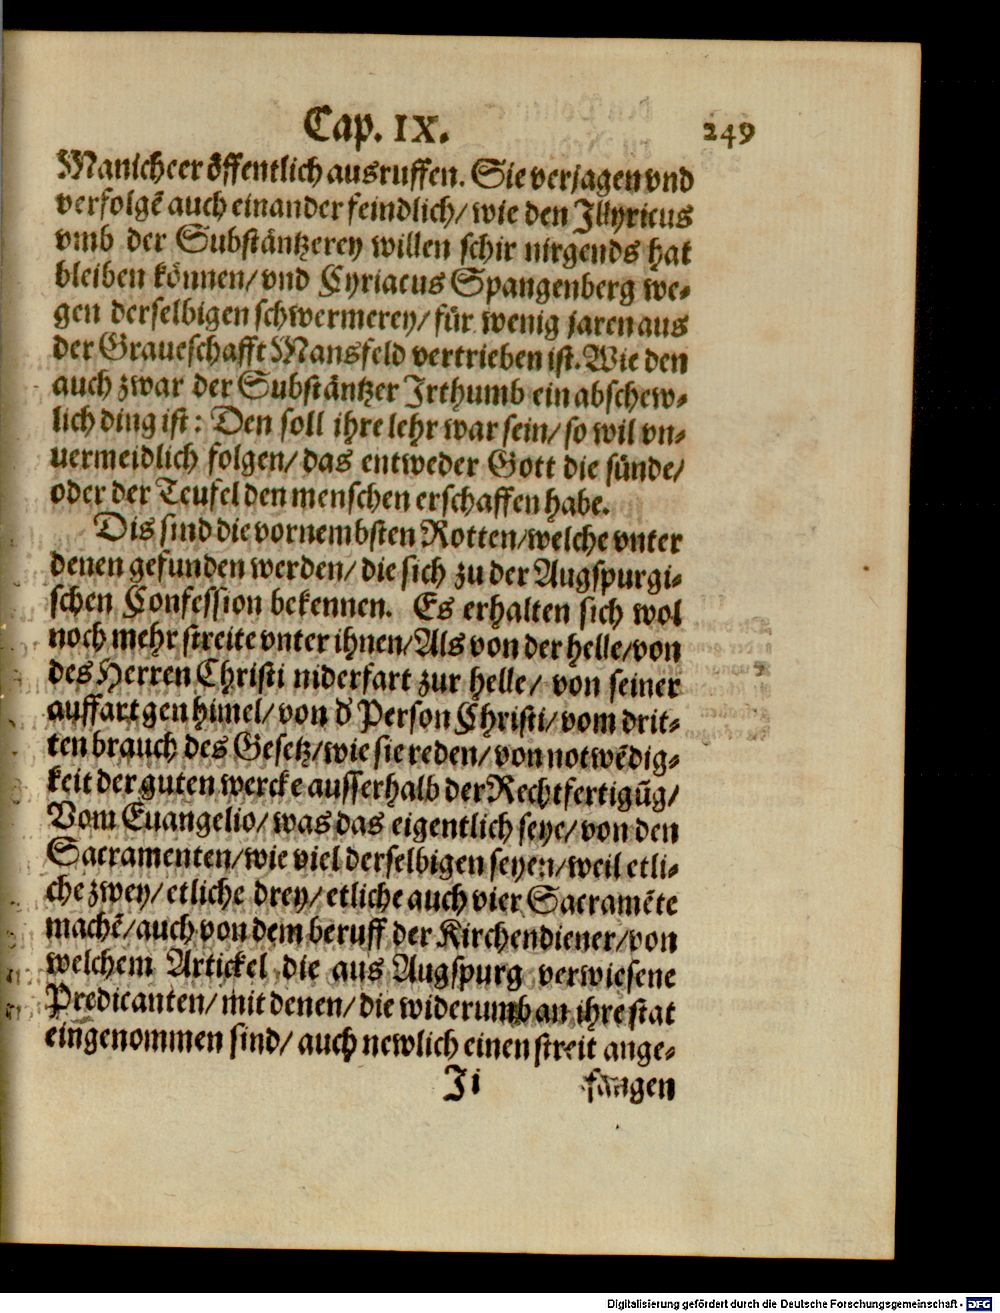 Cap. IX. 249
Manicheer öffentlich ausruffen. Sie verjagen vnd
verfolgẽ auch einander feindlich/ wie den Illyricus
vmb der Substäntzerey willen schir nirgends hat
bleiben können/ vnd Cyriacus Spangenberg we-
gen derselbigen schwermerey/ für wenig jaren aus
der Graueschafft Mansfeld vertrieben ist. Wie den
auch zwar der Substäntzer Irthumb ein abschew-
lich ding ist: Den soll ihre lehr war sein/ so wil vn-
uermeidlich folgen/ das entweder Gott die sünde/
oder der Teufel den menschen erschaffen habe.
Dis sind die vornembsten Rotten/ welche vnter
denen gefunden werden/ die sich zu der Augspurgi-
schen Confession bekennen. Es erhalten sich wol
noch mehr streite vnter ihnen/ Als von der helle/ von
des Herren Christi niderfart zur helle/ von seiner
auffart gen himel/ von d' Person Christi/ vom drit-
ten brauch des Gesetz/ wie sie reden/ von notwẽdig-
keit der guten wercke ausserhalb der Rechtfertigũg/
Vom Euangelio/ was das eigentlich seye/ von den
Sacramenten/ wie viel derselbigen seyen/ weil etli-
che zwey/ etliche drey/ etliche auch vier Sacramẽte
machẽ/ auch von dem beruff der Kirchendiener/ von
welchem Artickel die aus Augspurg verwiesene
Predicanten/ mit denen/ die widerumb an ihre stat
eingenommen sind/ auch newlich einen streit ange-
Ii fangen
Digitalisierung gefördert durch die Deutsche Forschungsgemeinschaft - DFG